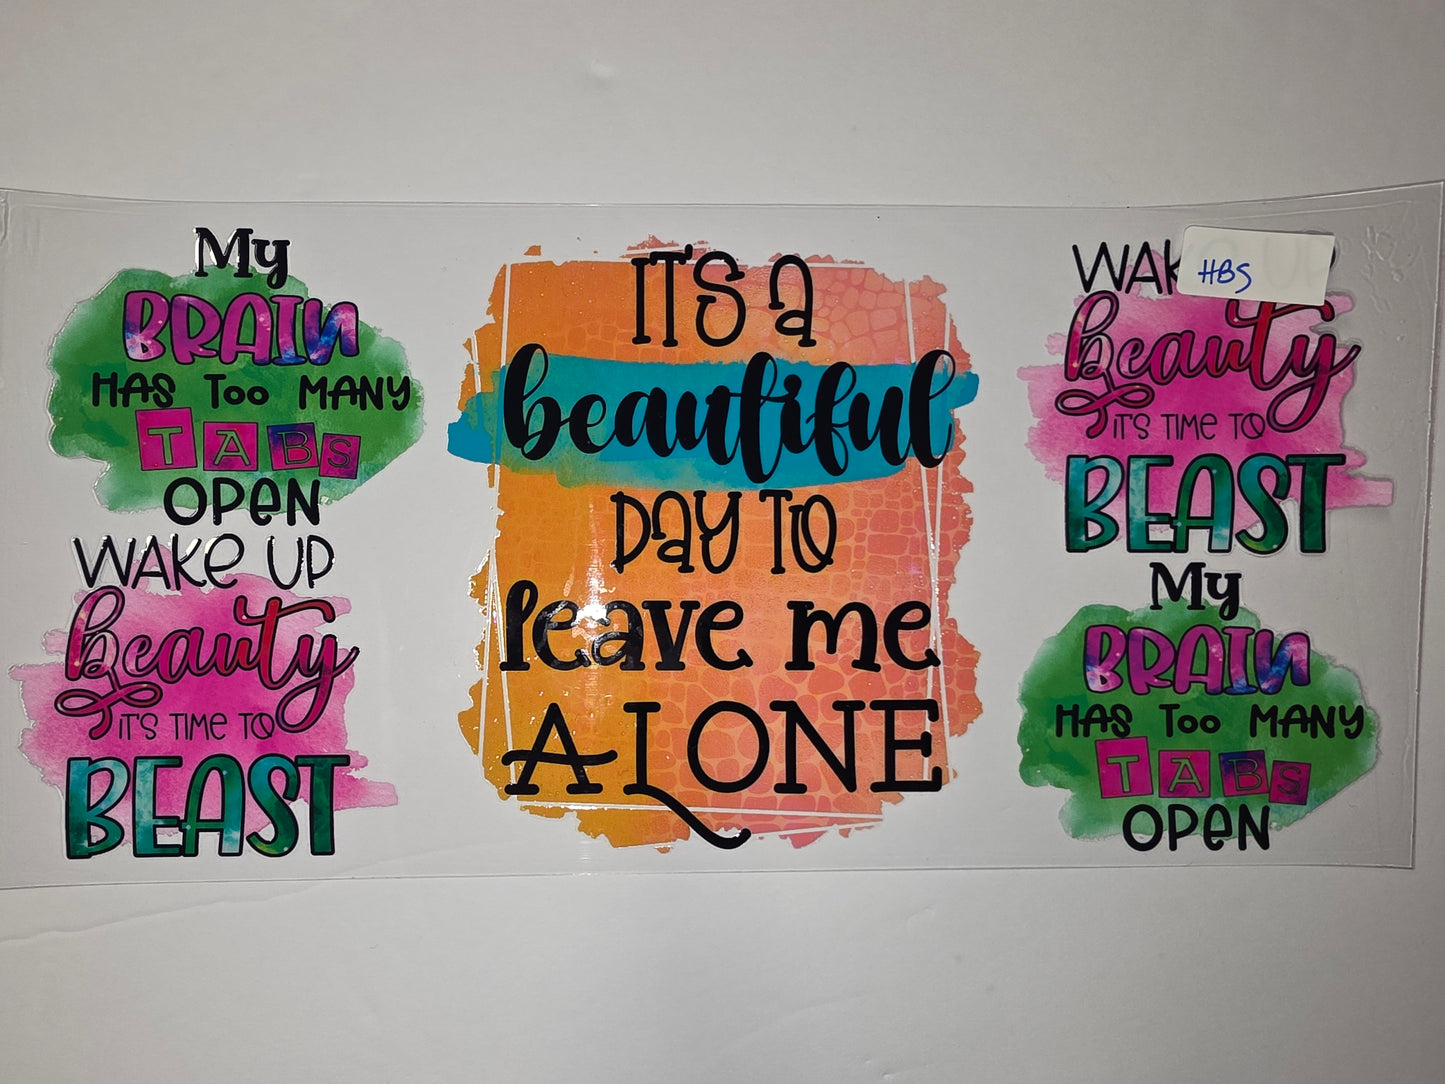 My
BRAIN
HAS TOO MANY
TABS
OPEN
WAKE UP
beauty
IT'S TIME TO
BEAST
IT'S A
beautiful
DAY TO
leave me
ALONE
WAKE UP
HBS
beauty
IT'S TIME TO
BEAST
My
BRAIN
HAS TOO MANY
TABS
OPEN